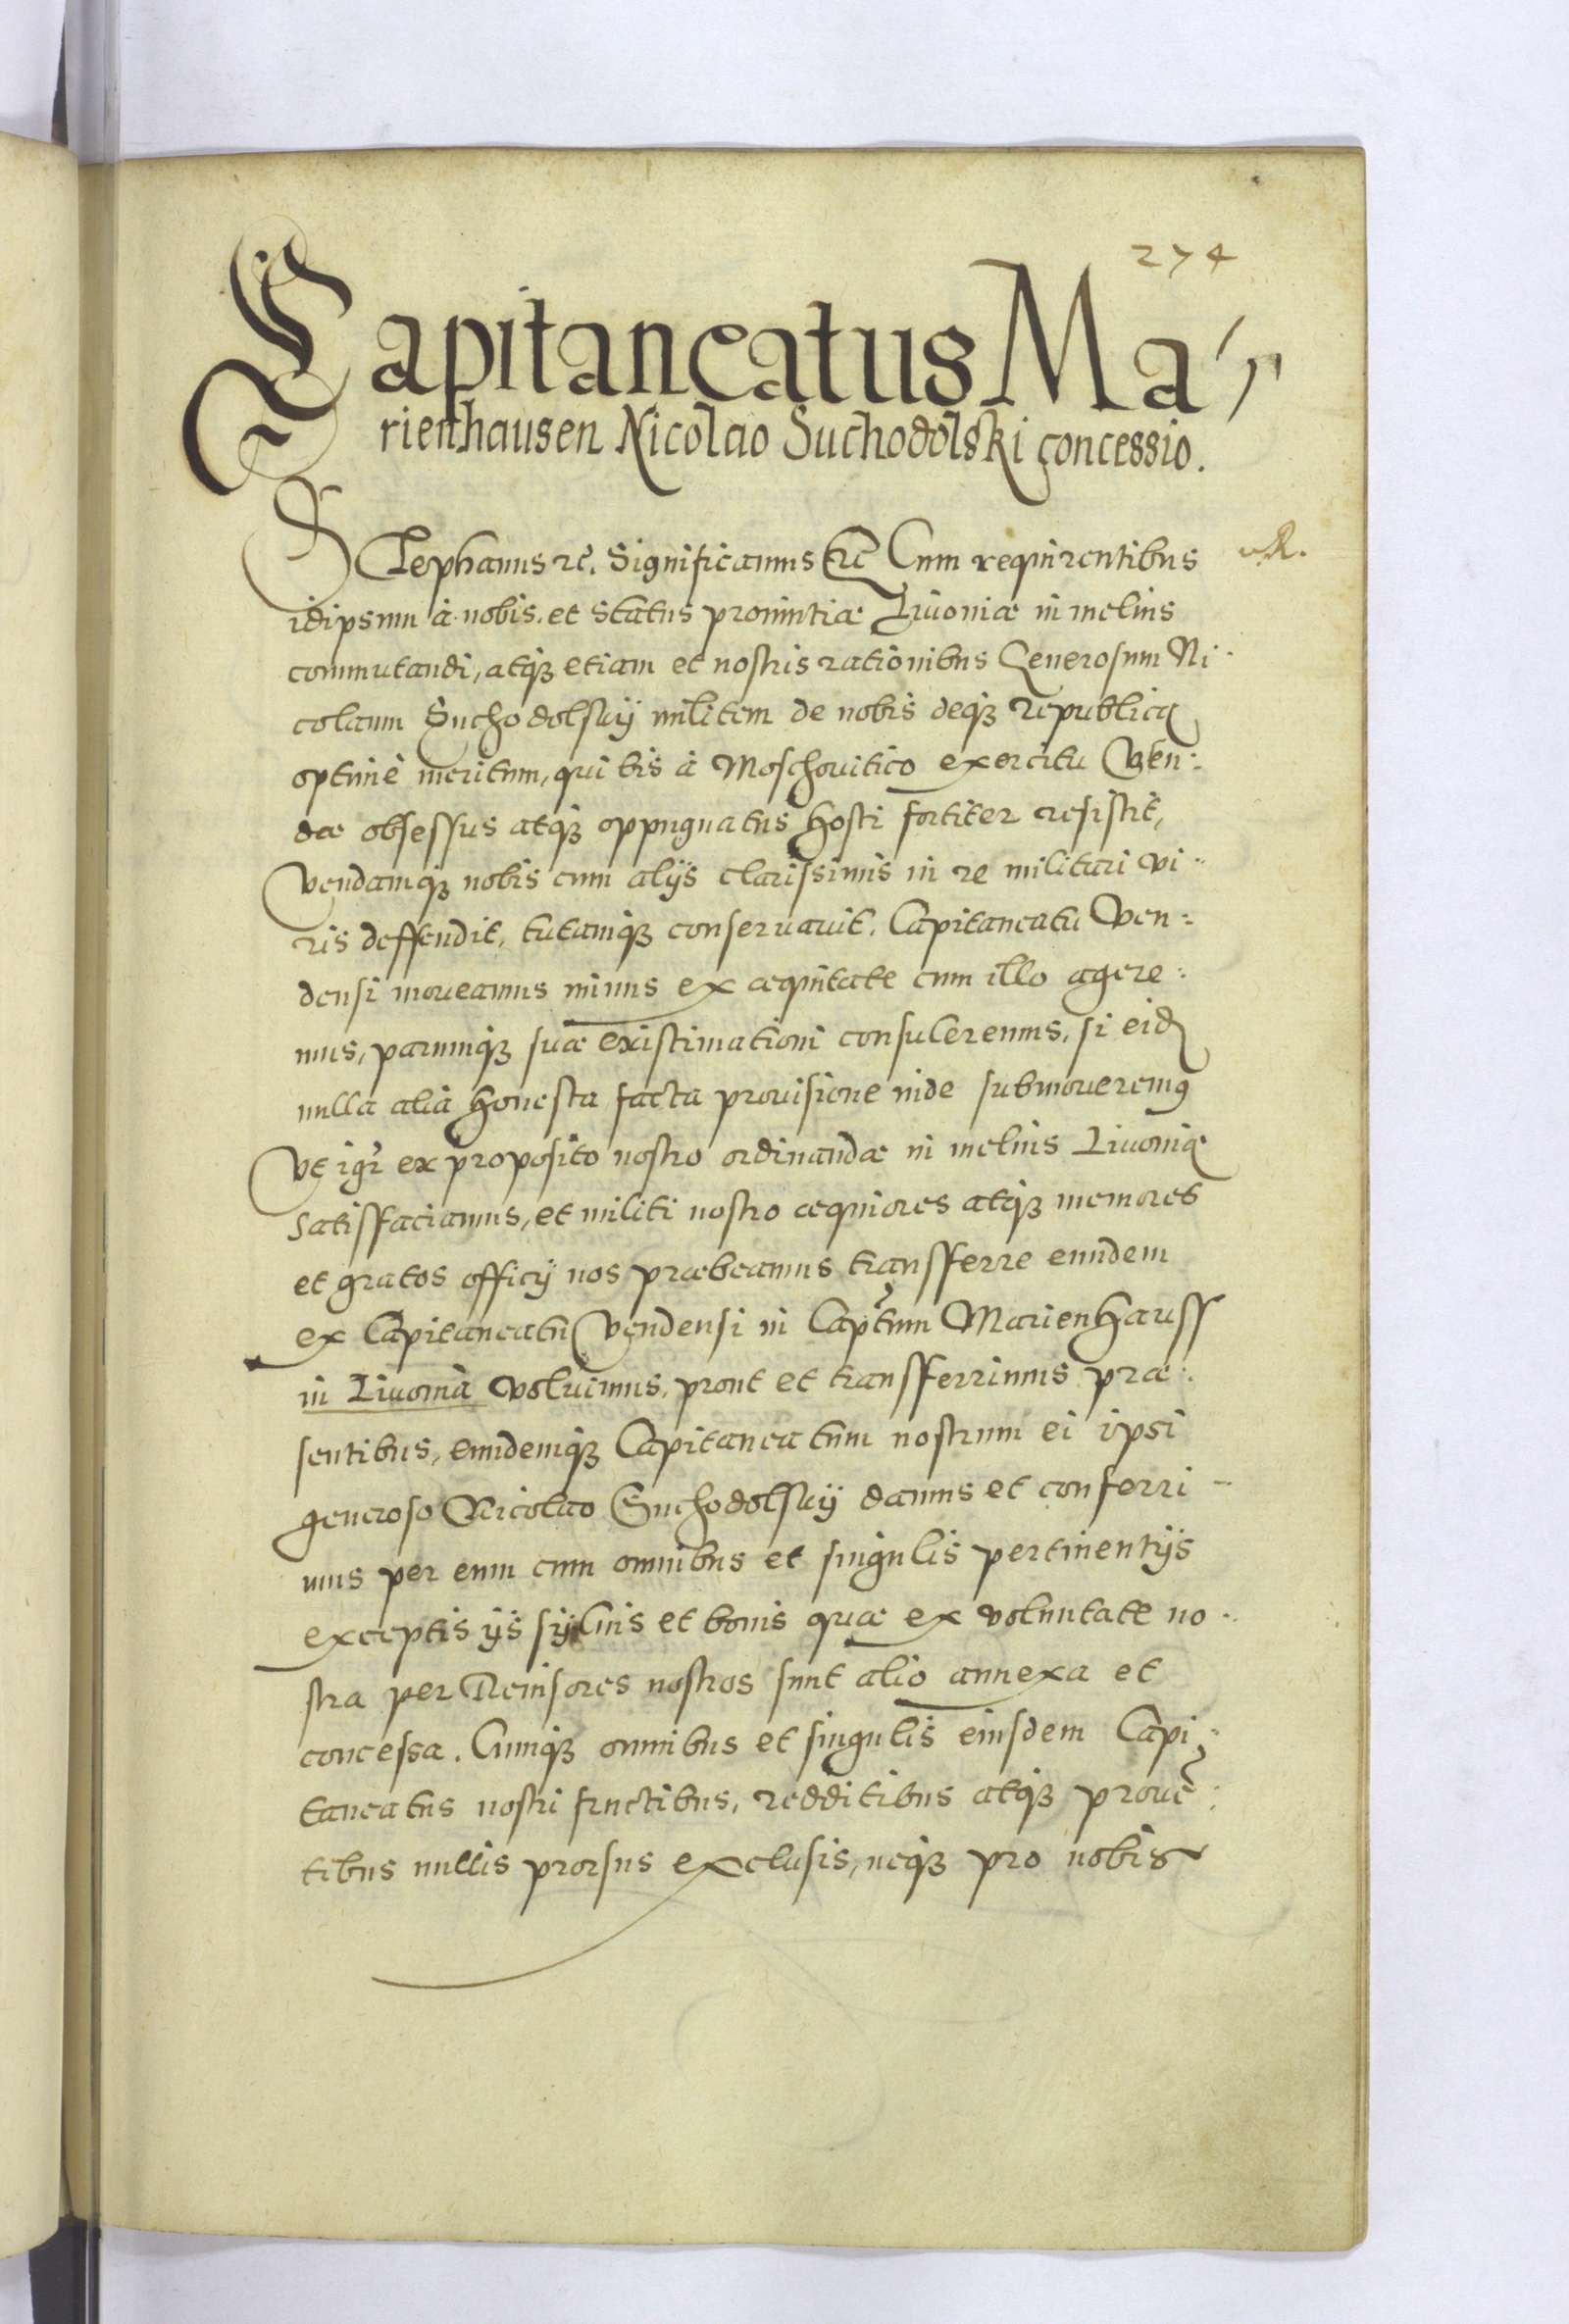 274
Capitaneatus Ma-
rienhausen Nicolao Suchodolski concessio.
Stephanus etc. Significamus etc. Cum requirentibus
R.
idipsum à nobis, et status provintiæ Livoniæ in melius
commutandi, atq; etiam et nostris rationibus Generosum Ni-
colaum Suchodolsky militem de nobis deq; republica
optimè meritum, qui bis à Moschovitico exercitu Ven-
dæ obsessus atq; oppugnatus hosti fortiter resistit,
Vendamq; nobis cum alijs clarissimis in re militari vi-
ris deffendit, tutamq; conservavit, Capitaneatu Ven-
densi moveamus minus ex æquitate cum illo agere-
mus, parumq; suæ existimationi consuleremus, si eid
nulla alia honesta facta provisione inde submoveremus
Vt igr ex proposito nostro ordinandæ in melius Livoniæ
satisfaciamus, et militi nostro æquiores atq; memores
et gratos officij nos præbeamus transfferre eundem
ex Capitaneatu Vendensi in Captum Marienhauss
in Livonia voluimus, prout et transfferrimus præ-
sentibus, eundemq; Capitaneatum nostrum ei ipsi
generoso Nicolao Suchodolsky damus et conferri-
mus per eum cum omnibus et singulis pertinentijs
exceptis ijs sylvis et bonis quæ ex voluntate no-
stra per Revisores nostros sunt alio annexa et
concessa. Cumq; omnibus et singulis eiusdem Capi-
taneatus nostri fructibus, redditibus atq; provē-
tibus nullis prorsus exclusis, neq; pro nobis